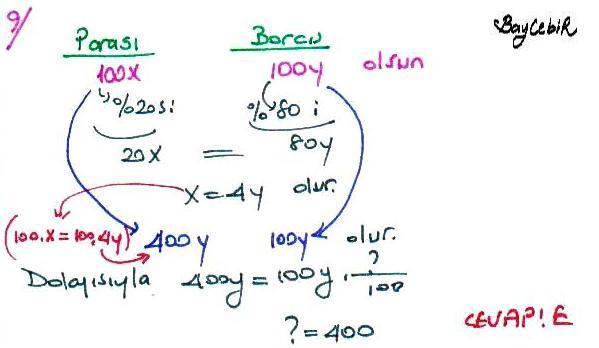 9/
BayCebiR
Parası Borcu
100x 100y olsun
%20si %80 i
20x = 80y
x = 4y olur.
(100.x = 100.4y) 400y 100y olur.
Dolayısıyla 400y = 100y . ?/100
? = 400
CEVAP: E